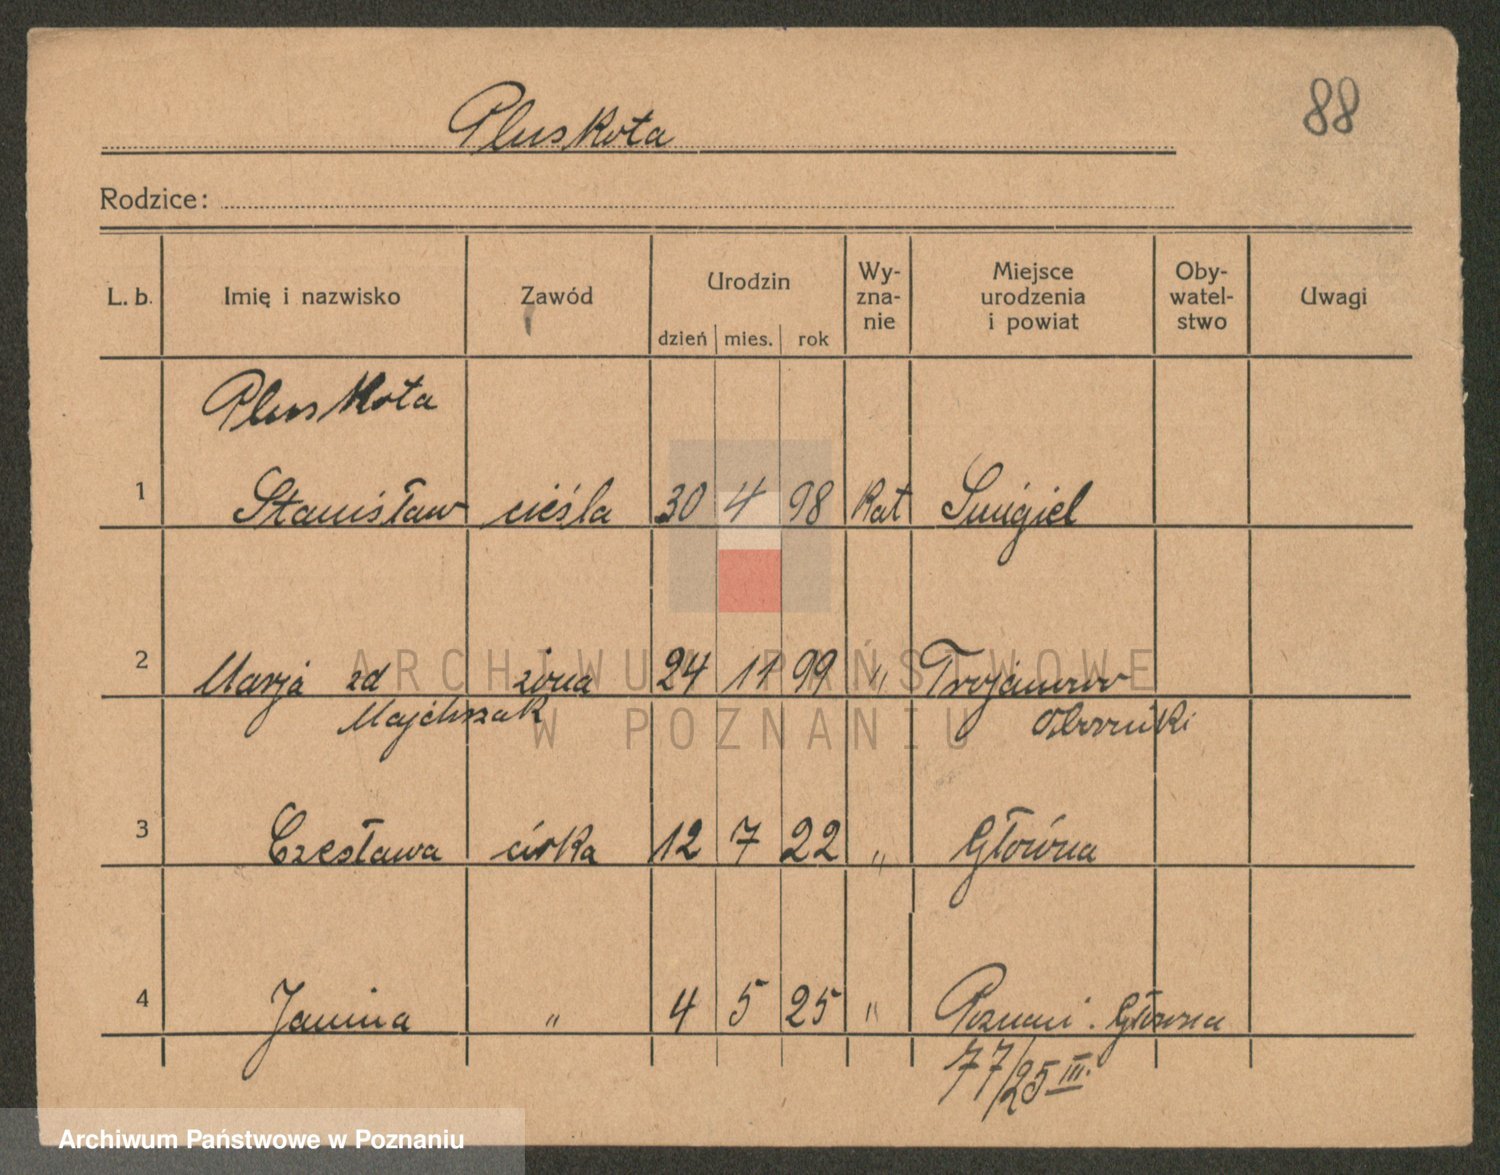 Pluskota
88
Rodzice:
L. b. Imię i nazwisko Zawód Urodzin Wy-zna-nie Miejsce urodzenia i powiat Oby-watel-stwo Uwagi
dzień mies. rok
Pluskota
1 Stanisław cieśla 30 4 98 kat Śmigiel
2 Marja zd żona 24 11 99 " Trojanowo
Majchrzak Oborniki
3 Czesława córka 12 7 22 " Główna
4 Janina " 4 5 25 " Poznań. Główna
77/25 III.
ARCHIWUM PAŃSTWOWE
W POZNANIU
Archiwum Państwowe w Poznaniu